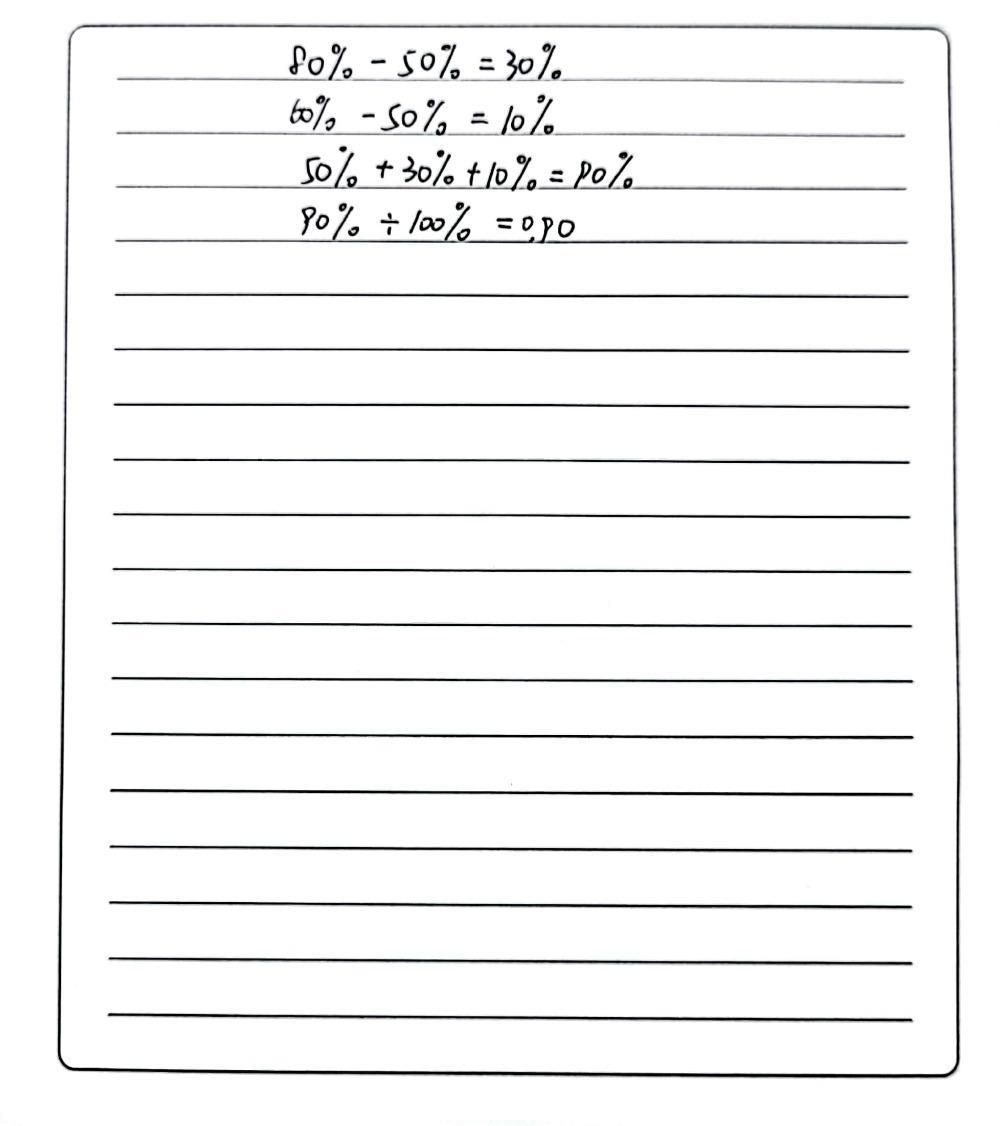 80% - 50% = 30%
60% - 50% = 10%
50% + 30% + 10% = 90%
90% ÷ 100% = 0.90